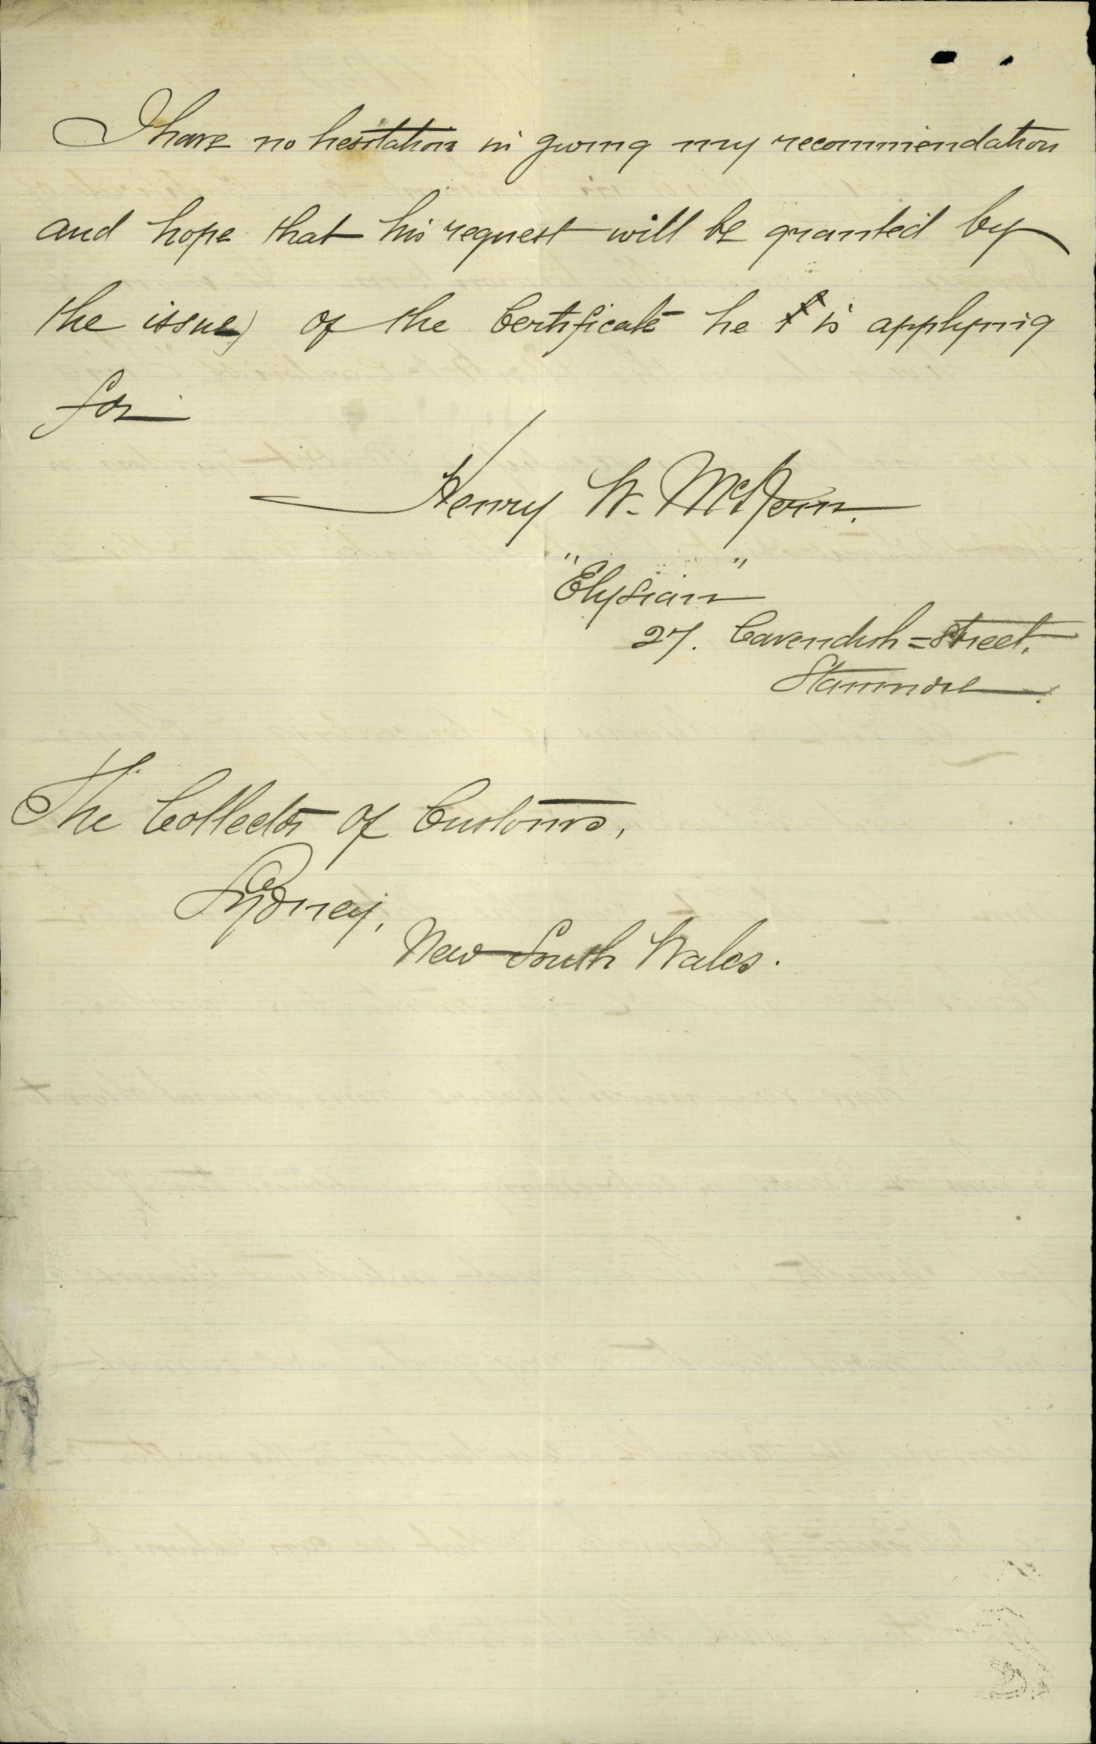 I have no hesitation in giving my recommendation
and hope that his request will be granted by
the issue of the Certificate he is applying
for
Henry W. McKern.
"Elysian"
27. Cavendish = Street.
Stanmore.
The Collector of Customs,
Sydney,
New South Wales.